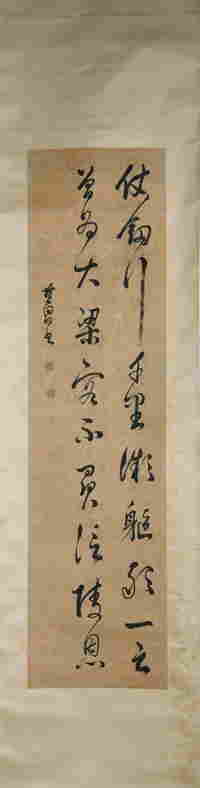 仗劒行千里微軀敢一言
曾為大梁客不負信陵恩
董其昌書